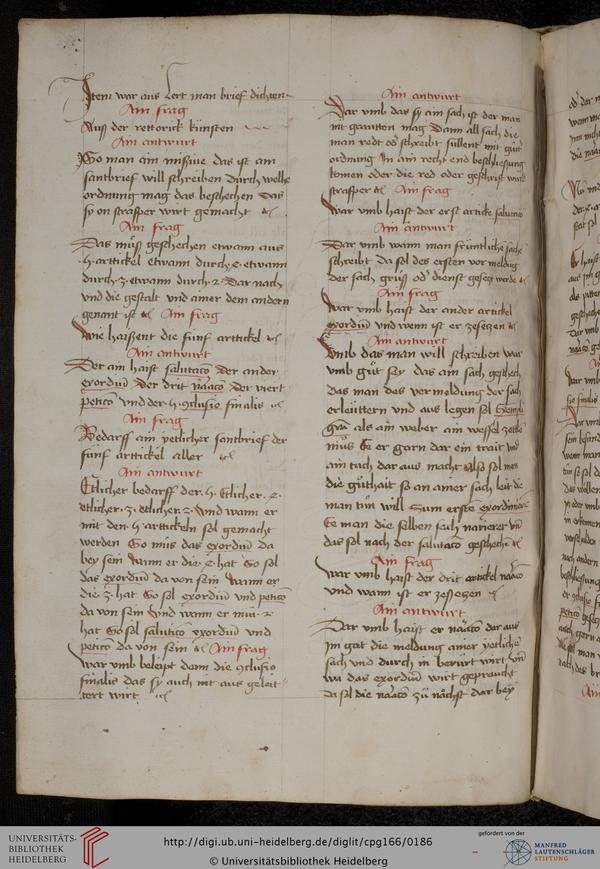 Item war aus lert man brief dichten
Ain frag
Auß der rettorick künsten
Ain antwurt
Wo man ain missiue das ist ain
santbrief will schreiben durch welhe
ordnung mag das beschechen das
sy on straffper wirt gemacht ꝛc
Ain frag
Das müß geschechen etwann aus
.5. arttickel etwann durch .4. etwann
durch .3. etwann durch .2. Dar nach
vnd die gestalt vnd ainer dem andern
genant ist ꝛc Ain frag
Wie haissent die fünf arttickel ꝛc
Ain antwurt
Der ain haist salutacō der ander
exordiū Der drit naracō Der viert
peticō vnd der .5. ꝯclusio finalis ꝛc
Ain frag
Bedarff ain yetlicher santbrief der
fünf arttickel aller ꝛc
Ain antwurt
Etlicher bedarff der .5. Etlicher .4.
etlicher .3. etlicher .2. Vnd wann er
mit den .5. arttickeln sol gemacht
werden So müs das exordiū da
bey sein Wann er die .4. hat So sol
das exordiū da von sein Wann er
die .3. hat So sol exordiū vnd peticō
da von sein Vnd wann er nun .2.
hat So sol salutacō exordiū vnd
peticō da von sein ꝛc Ain frag
War vmb beleipt denn die ꝯclusio
finalis das sy auch nit aus geleit
tert wirt ꝛc
Ain antwurt
Dar vmb das sy ain sach ist der man
nit geratten mag Dann all sach die
man redt od' schreibt süllent mit gůt
ordnung In ain recht end beschliessung
komen oder die red oder geschrift ward
straffper ꝛc Ain frag
War vmb haist der erst articke salutacō
Ain antwurt
Dar vmb wann man früntliche sach
schreibt da sol des ersten vor meldung
der sach grüss od' dienst gesetzt werde ꝛc
Ain frag
War vmb haist der ander artickel
exordiū vnd wenn ist er zesetzen ꝛc
Ain antwurt
Vmb das man will schreiben war
vmb gůt sey das ain sach geschech
Das man des vermeldung der sach
erleüttern vnd aus legen sol Exempli
gra als ain weber ain wessel zettel
müs Ee er garn dar ein trait vnd
ain tuch dar aus macht Also sol men
die gůthait so an ainer sach leit die
man tün will Zum erste exordinirē
Ee man die selben sach narierer vn̄
das sol nach der salutacō geschech ꝛc
Ain frag
War vmb haist der drit artickel naracō
vnd wann ist er zesetzen ꝛc
Ain antwurt
Dar vmb haist er naracō dar aus
Im gat die meldung ainer yetliche
sach vnd durch in berürt wirt vn̄
wa das exordiū wirt gepraucht
da sol die naracō zů nächst dar bey
UNIVERSITÄTS-
BIBLIOTHEK
HEIDELBERG
http://digi.ub.uni-heidelberg.de/diglit/cpg166/0186
© Universitätsbibliothek Heidelberg
gefördert von der
MANFRED
LAUTENSCHLÄGER
STIFTUNG